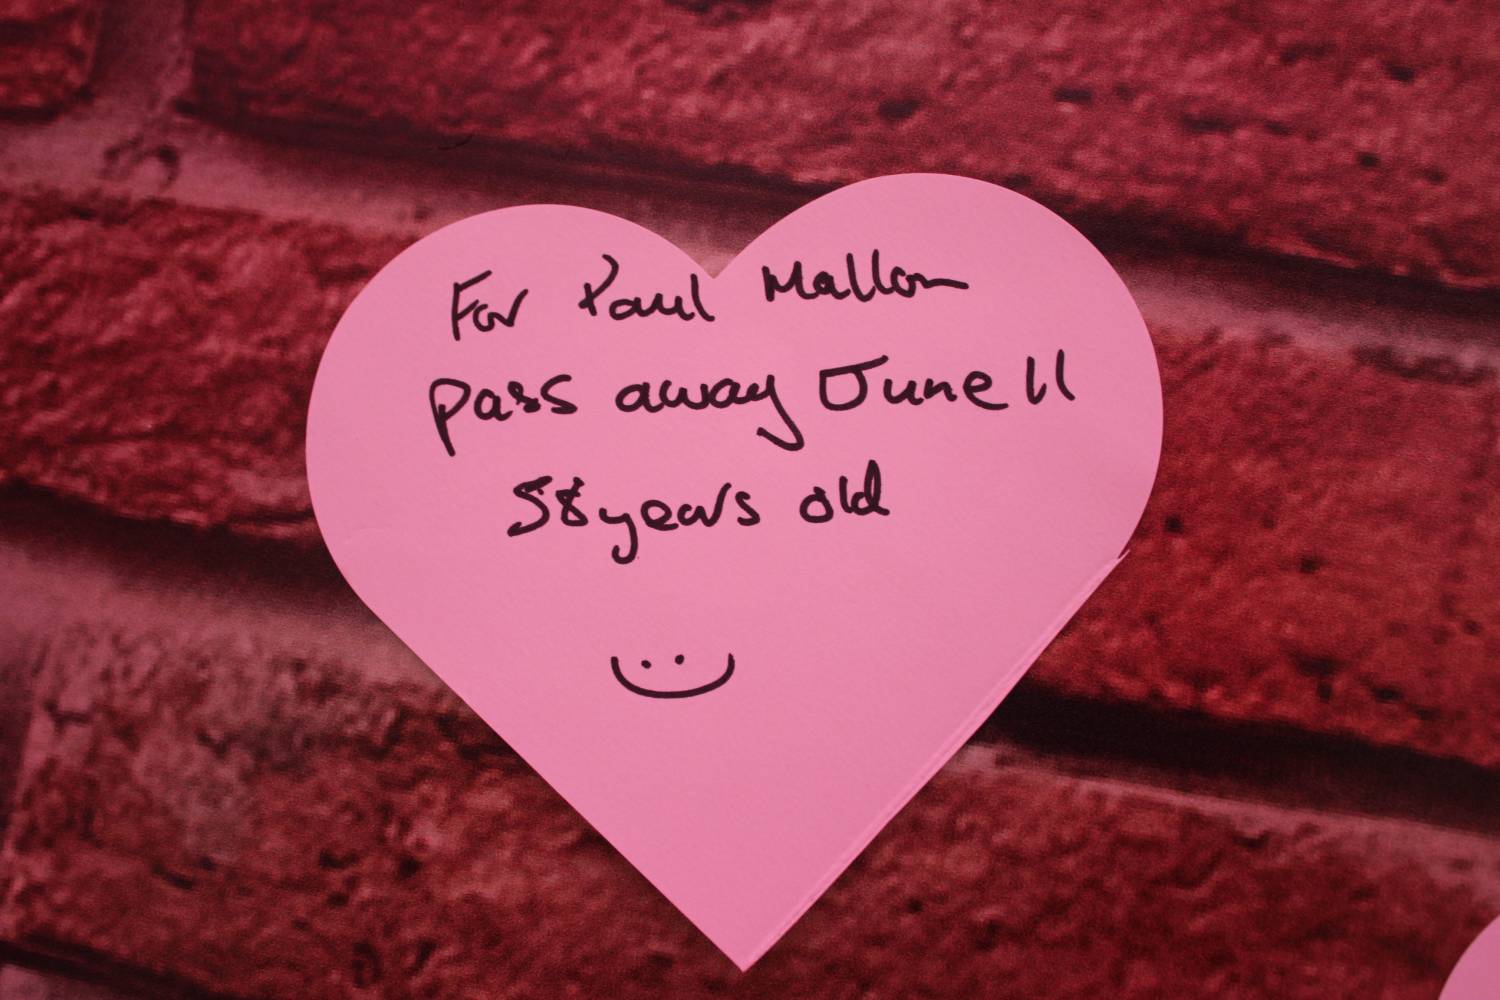 For Paul Mallon
pass away June 11
58 years old